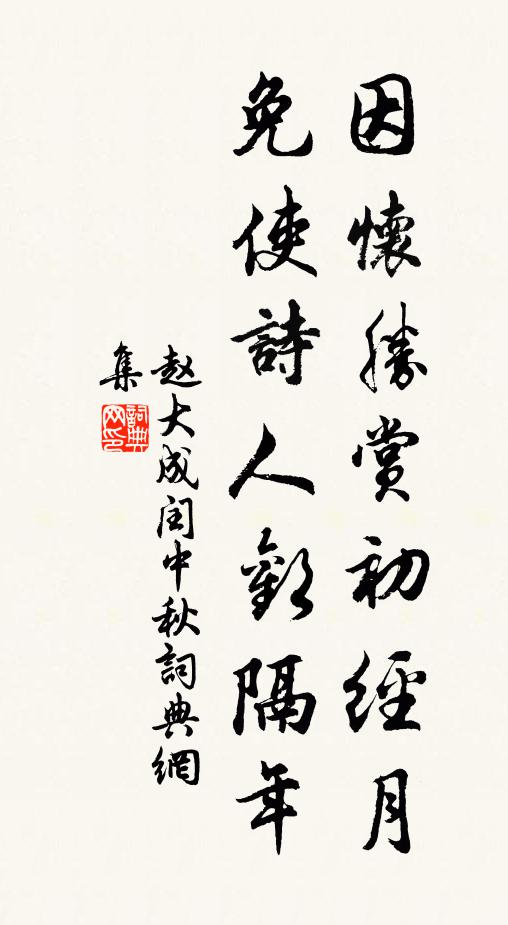 因懷勝賞初經月
免使詩人歎隔年
赵大成闰中秋詞典網
集
詞典
网印